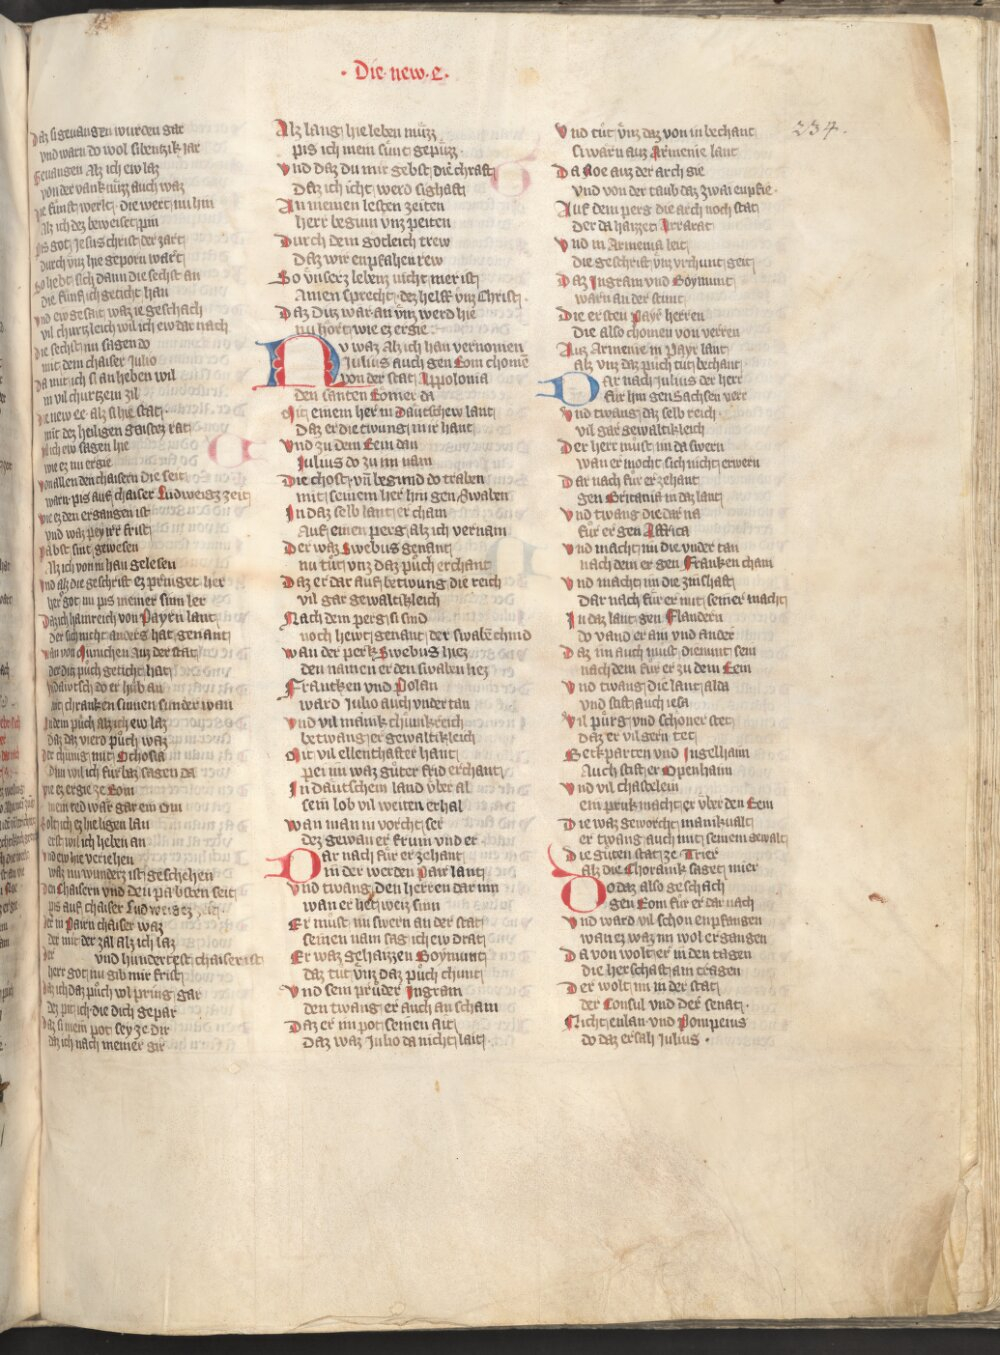 · Die · new · e ·
234.
Daz si geuangen wurden gar
vnd warn do wol sibentzik jar
Geuangen Alz ich ew laz
von der vanknüzz auch waz
die fünft werlt · die wert nu hin
Alz ich dez beweiset pin
pis got Jesus christ der zart
durch vnz hie geporn wart
So hebt sich dann die sechst an
die fünf ich geticht han
vnd ew gesait waz ie geschach
vil churtzleich wil ich ew dar nach
die sechst nu sagen do
mit dem chaiser Julio
Da mit ich si an heben wil
in vil churtzem zil
die new ee alz si hie stat
mit dez heiligen gaistez rat
wil ich ew sagen hie
wie ez nu ergie
von allen den chaisern die seit
warn pis auf chaiser Ludweigz zeit
wie ez den ergangen ist
vnd waz pey irr frist
pabst sint gewesen
Alz ich von in han gelesen
vnd alz die geschrift ez pringet her
herr got nu pis meiner sinn ler
Daz ich hainreich von Payrn lant
der sich nicht anders hat genant
wan von Munichen Auz der stat
der ditz půch geticht hat
ze dawtsch do er hůb an
mit chranken sinnen sunder wan
In dem půch alz ich ew laz
daz daz vierd půch waz
der chunig mit Ochosia
dann wil ich fürbaz sagen da
wie ez ergie ze Rom
mein red wär gar ein om
wolt ich ez hie ligen lan
erst wil ich heben an
vnd ew hie veriehen
waz nu wunders ist geschehen
den chaisern vnd den pabsten seit
pis auf chaiser Ludweigez zeit
der in Pairn chaiser waz
der mit der zal alz ich laz
der      vnd hundertest chaiser ist
herr got nu gib mir frist
daz ich daz půch vol pring gar
dez pit ich die dich gepar
daz si mein pot sey ze dir
daz ich nach meiner gir
Alz lang hie leben müzz
pis ich mein sünt gepüzz
Vnd daz du mir gebst die chraft
daz ich icht werd sighaft
An meinen lesten zeiten
herr beginn vnz peiten
Durch dein götleich trew
daz wir enpfahen rew
So vnserz lebenz nicht mer ist
Amen sprecht · dez helff vnz Christ ·
Daz ditz war an vnz werd hie
nu hort wie ez ergie
Nv waz alz ich han vernomen
Julius auch gen Rom chomen
von der stat Appolonia
den santen Römer da
Mit einem her in Dautschew lant
Daz er die twung mit hant
Vnd zu dem Rein dan
Julius do zu im nam
Die chost vnd begund do traben
mit seinem her hin gen Swaben
In daz selb lant er cham
Auf einen perg alz ich vernam
Der waz Swebus genant
nu tůt vnz daz půch erchant
Daz er dar auf betwung die reich
vil gar gewaltikleich
Nach dem perg si sind
noch hewt genant der Swaben chind
wan der perk Swebus hiez
den namen er den Swaben liez
Francken vnd Polan
ward Julio auch vndertan
Vnd vil manik chunikreich
betwang er gewaltikleich
Mit vil ellenthafter hant
pei im waz gůter frid erchant
In dautschem land vber al
sein lob vil weiten erhal
wan man in vorcht ser
dez gewan er frum vnd er
Dar nach für er zehant
in der werden Pair lant
Vnd twang den herren dar inn
wan er het weiz sinn
Er můst im swern an der stat
seinen nam sag ich ew drat
Er waz gehaizzen Boymunt
daz tůt vnz daz půch chunt
Vnd sein průder Ingram
den twang er auch an scham
Daz er im pot seinen ait
Daz waz Julio da nicht lait
Vnd tůt vnz daz von in bechant
si warn auz Armenie lant
Da Noe auz der arch gie
vnd von der taub daz zwai enpfie ·
Auf dem perg die arch noch stat
der da haizzet Ararat
Vnd in Armenia leit
die geschrift vnz vrchunt geit
Daz Ingram vnd Boymunt
warn an der stunt
Die ersten Payr herren
die also chomen von verren
Auz Armenie in Payr lant
alz vnz daz půch tůt bechant
Dar nach Julius der herr
für hin gen Sachsen verr
Vnd twang daz selb reich
vil gar gewaltikleich
Der herr můst im da swern
wan er mocht sich nicht erwern
Dar nach für er zehant
gen Britania in daz lant
Vnd twang die dar na
für er gen Affrica
Vnd macht im die vnder tan
nach dem er gen Franken cham
Vnd macht im die zinshaft
Dar nach für er mit seiner macht
In daz lant gen Flandern
do vand er ain vnd ander
Daz im auch must dienunt sein
nach dem für er zu dem Rein
Vnd twang die lant alda
vnd stift auch iesa
Vil pürg vnd schöner stet
daz er vil gern tet
Beckparten vnd Ingelhaim
Auch stift er Openhaim
Vnd vil chastelein
ein pruk macht er vber den Rein
Die waz geworcht manikualt
er twang auch mit seinem gewalt
Die gůten stat ze Trier
alz die Choranik saget mier
Do daz also geschach
gen Rom für er dar nach
Vnd ward vil schon enpfangen
wan ez waz im wol ergangen
Da von wolt er in den tagen
die herschaft am tragen
Der wolt im in der stat
der Consul vnd der senat ·
Nicht enlan vnd Pompeius
do daz ersah Julius ·